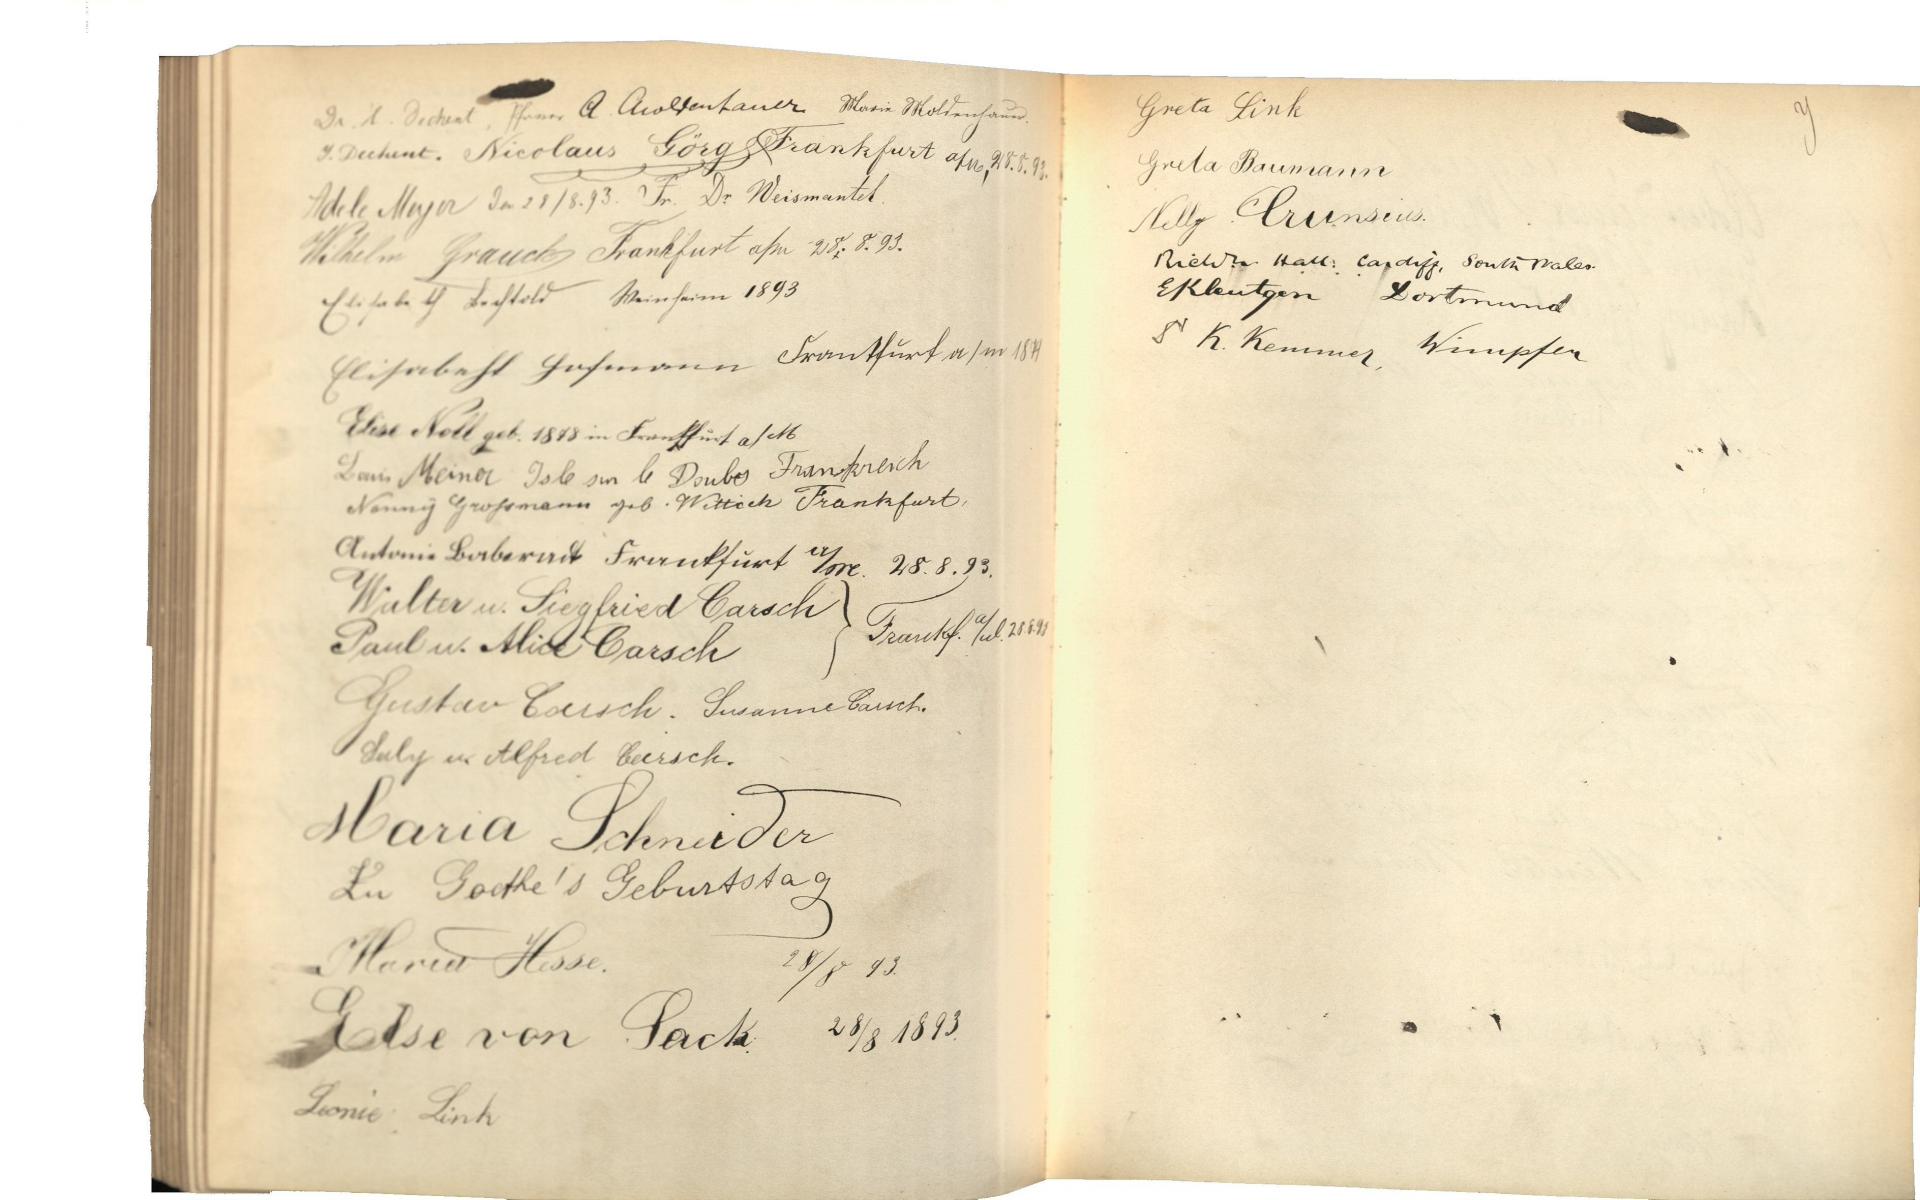 Dr. A. Dechent, Pfarrer A. Moldenhauer Marie Moldenhauer.
J. Dechent. Nicolaus Görg Frankfurt a/M, 28.8.93.
Adele Meyer den 28/8.93. Fr. Dr. Weismantel.
Wilhelm Grauck Frankfurt a/M 28. 8. 93.
Elisabeth Bechtold Weinheim 1893
Elisabeht Hofmann Frankfurt a/m
Elise Noll geb. 1878 in Frankfurt a/M
Louis Meiner Isle sur le Doubs Frankreich
Nanny Großmann geb. Wittich Frankfurt.
Antonie Baberadt Frankfurt a/M. 28. 8. 93.
Walter u. Siegfried Carsch
Paul u. Alice Carsch } Frankf. a/M. 28.8.93
Gustav Carsch. Susanne Carsch.
Saly u. Alfred Carsch.
Maria Schneider
Zu Goethe's Geburtstag
Maria Hesse. 28/8 93.
Else von Sack. 28/8 1893.
Leonie Link
Greta Link
Greta Baumann
Nelly
Hall: Cardiff, South Wales.
EKleutgen Dortmund
K. Kemmer, Wimpfen